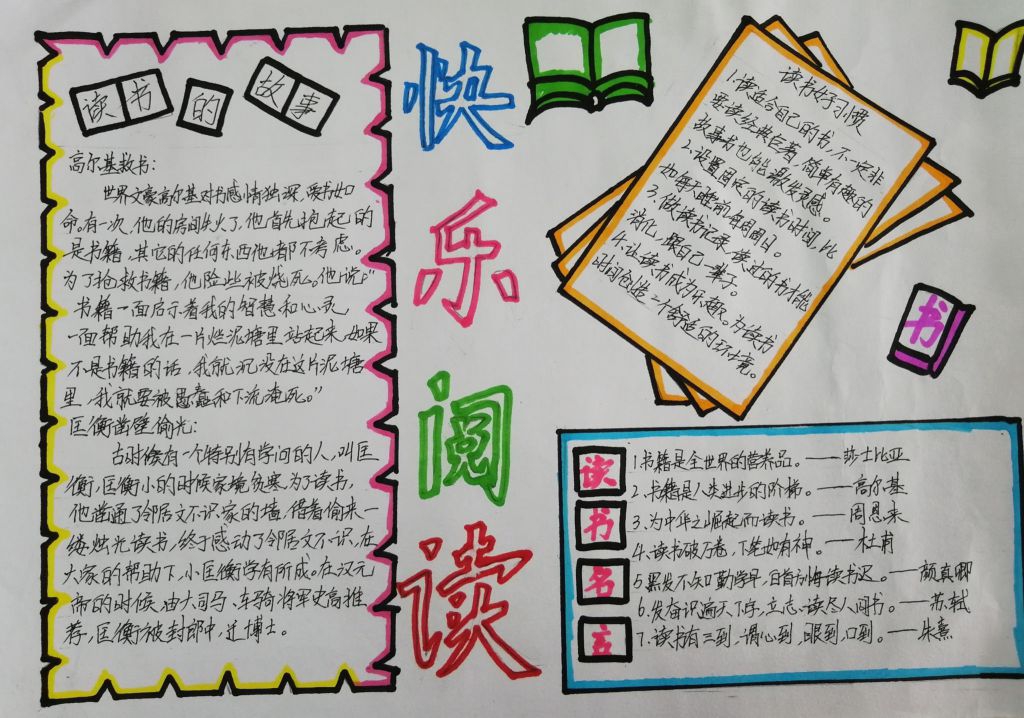 读书的故事
高尔基救书:
世界文豪高尔基对书感情独深,爱书如
命。有一次,他的房间失火了,他首先抱起的
是书籍,其它的任何东西他都不考虑。
为了抢救书籍,他险些被烧死。他说:“
书籍一面启示着我的智慧和心灵,
一面帮助我在一片烂泥塘里站起来,如果
不是书籍的话,我就沉没在这片泥塘
里,我就要被愚蠢和下流淹死。”
匡衡凿壁偷光:
古时候有一个特别有学问的人,叫匡
衡,匡衡小的时候家境贫寒,为了读书,
他凿通了邻居文不识家的墙,借着偷来一
缕烛光读书,终于感动了邻居文不识,在
大家的帮助下,小匡衡学有所成。在汉元
帝的时候,由大司马、车骑将军史高推
荐,匡衡被封郎中,迁博士。
快乐阅读
读书好习惯
1.读适合自己的书,不一定非
要读经典巨著,简单有趣的
故事书也能激发灵感。
2.设置固定的读书时间,比
如每天睡前每周周日。
3.做读书记录,读过的书才能
消化,跟自己一辈子。
4.让读书成为乐趣。为读书
时间创造一个舒适的环境。
书
读书名言
1.书籍是全世界的营养品。——莎士比亚
2.书籍是人类进步的阶梯。——高尔基
3.为中华之崛起而读书。——周恩来
4.读书破万卷,下笔如有神。——杜甫
5.黑发不知勤学早,白首方悔读书迟。——颜真卿
6.发奋识遍天下字,立志读尽人间书。——苏轼
7.读书有三到,谓心到,眼到,口到。——朱熹